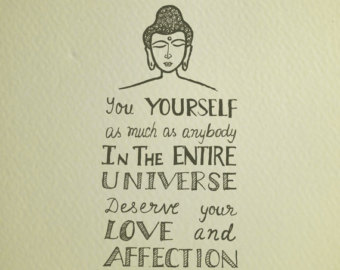 You YOURSELF
as much as anybody
IN THE ENTIRE
UNIVERSE
Deserve your
LOVE and
AFFECTION